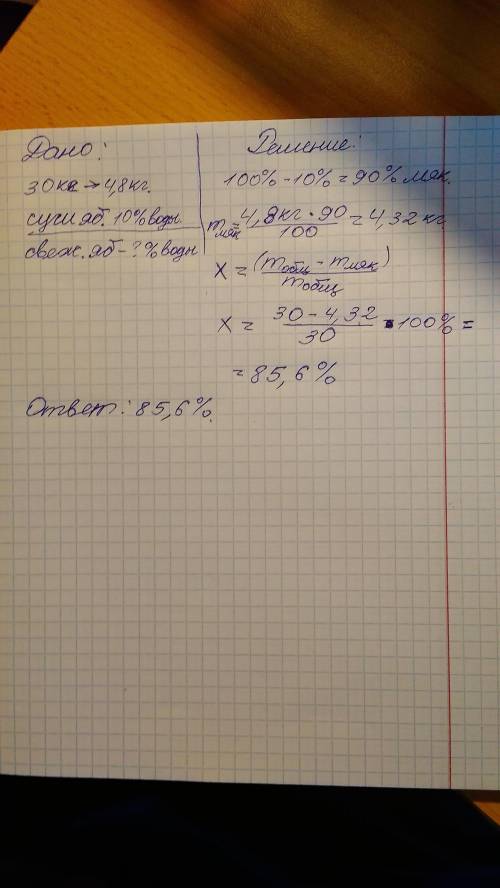 Дано:
30кг → 4,8кг.
суш яб. 10% воды
свеж. яб - ? % воды
Решение:
100% - 10% = 90% мяк.
m мяк = 4,8кг · 90 / 100 = 4,32 кг
x = (m общ - m мяк) / m общ
x = 30 - 4,32 / 30 · 100% =
= 85,6%
Ответ: 85,6%.